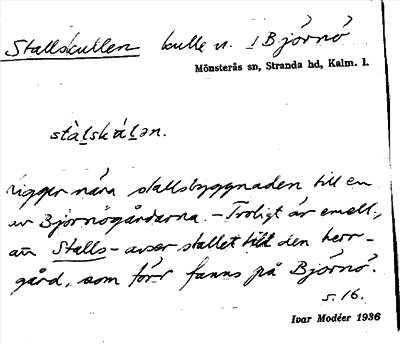 Stallskullen kulle n. I Björnö
Mönsterås sn, Stranda hd, Kalm. l.
stàl̲skál̲ən.
Ligger nära stallsbyggnaden till en
av Björnögårdarna. – Troligt är emell.,
att Stalls- avser stallet till den herr-
gård, som förr fanns på Björnö.
s. 16.
Ivar Modéer 1936